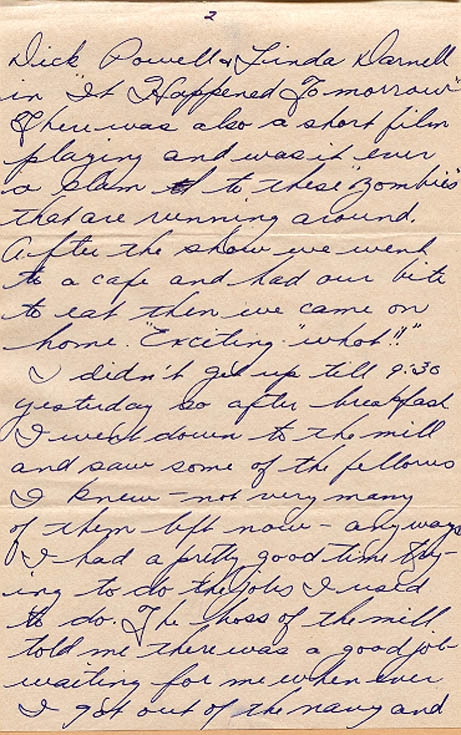 2
Dick Powell & Linda Darnell
in "It Happened Tomorrow"
There was also a short film
playing and was it ever
a slam to these "zombies"
that are running around.
After the show we went
to a cafe and had our bite
to eat then we came on
home. "Exciting "what!!"
I didn't get up till 9:30
yesterday so after breakfast
I went down to the mill
and saw some of the fellows
I knew - not very many
of them left now - anyways
I had a pretty good time try-
ing to do the jobs I used
to do. The boss of the mill
told me there was a good job
waiting for me when ever
I got out of the navy and